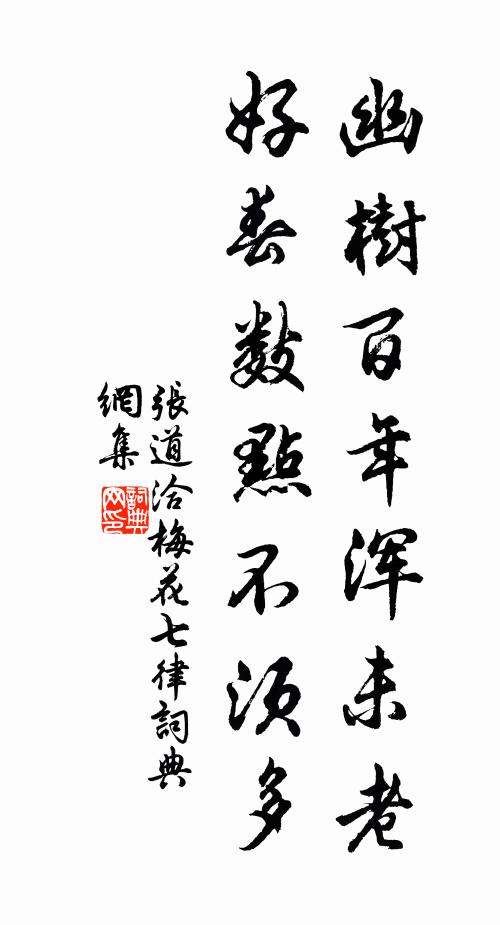 幽樹百年渾未老
好春數點不須多
張道洽梅花七律詞典
網集
詞典
网印